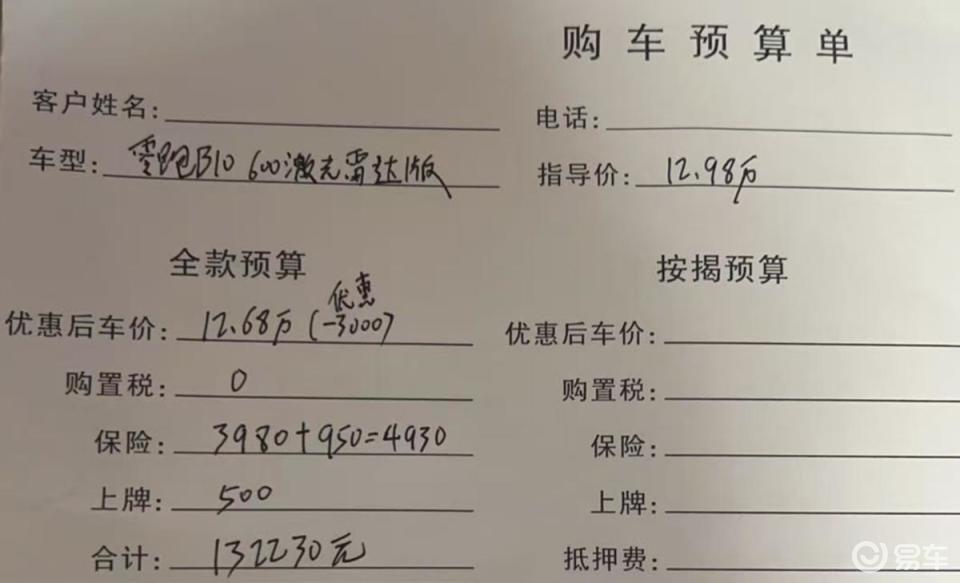 购车预算单
客户姓名:
电话:
车型: 零跑B10 600激光雷达版
指导价: 12.98万
全款预算
优惠后车价: 12.68万 (优惠-3000)
购置税: 0
保险: 3980+950=4930
上牌: 500
合计: 132230元
按揭预算
优惠后车价:
购置税:
保险:
上牌:
抵押费:
易车